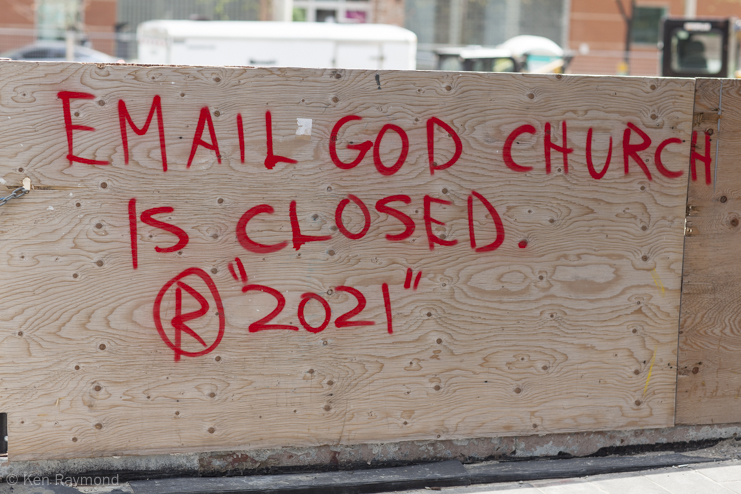 EMAIL GOD CHURCH
IS CLOSED.
® "2021"
© Ken Raymond